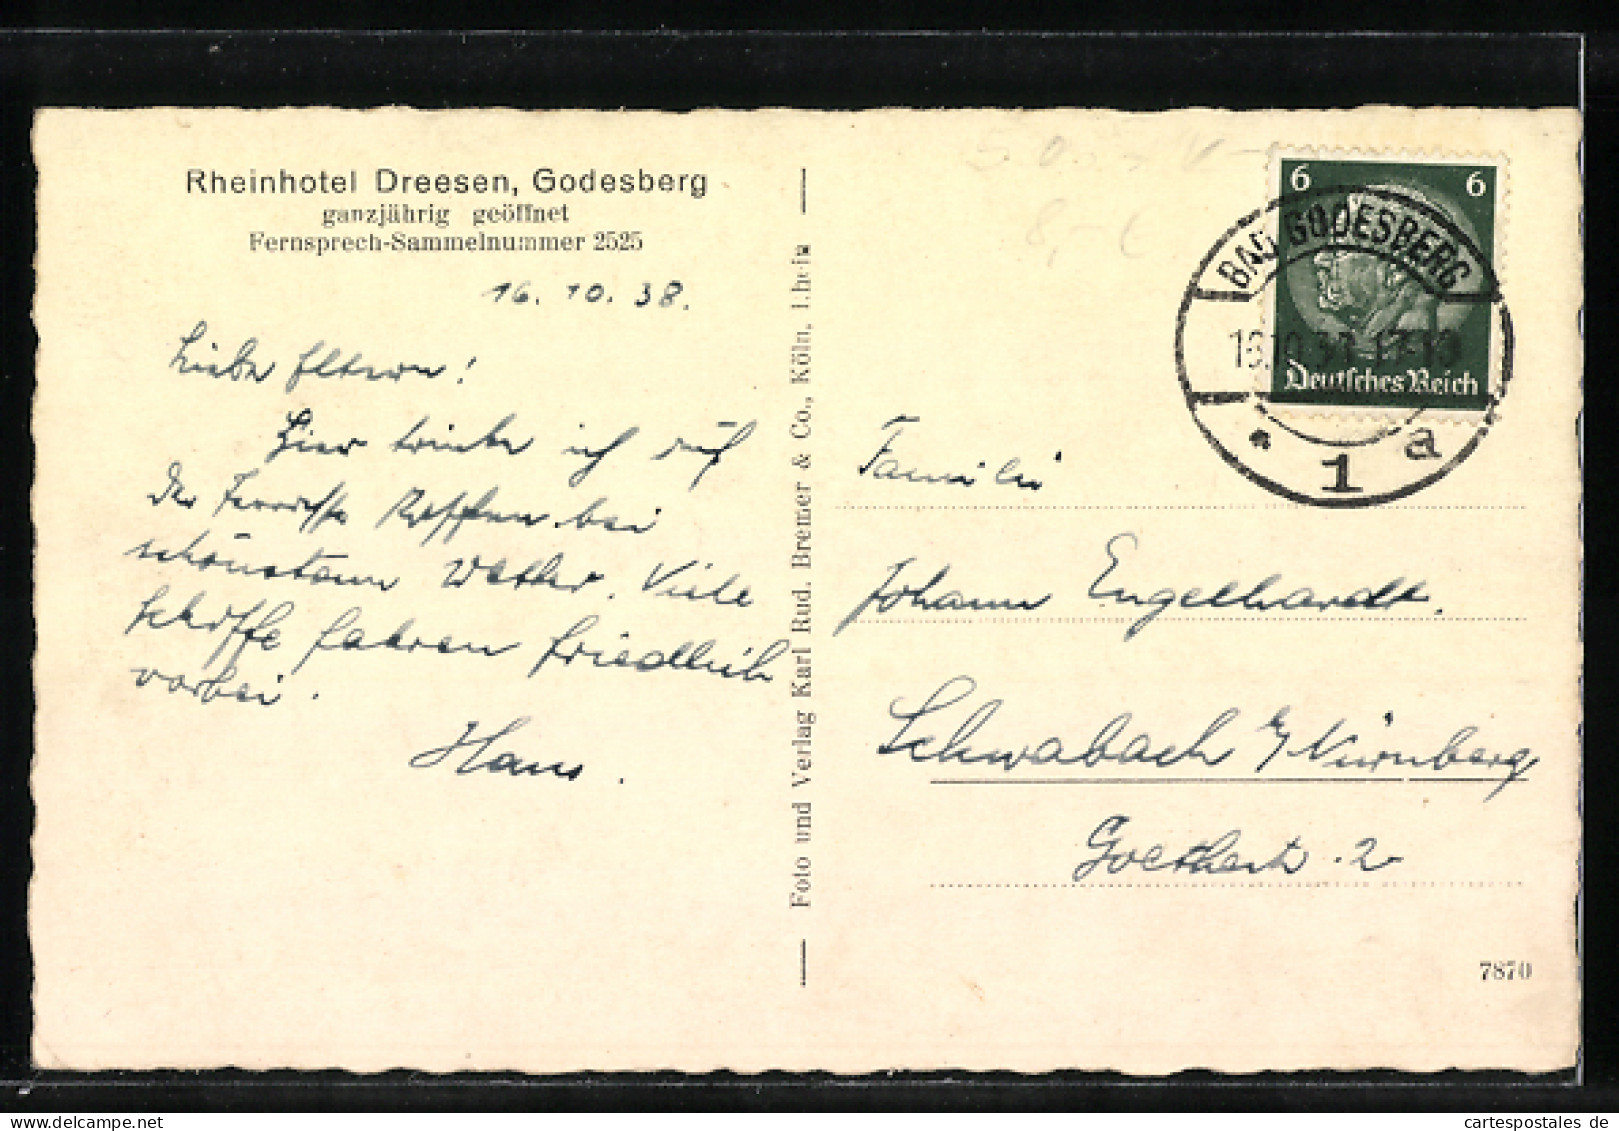 Rheinhotel Dreesen, Godesberg
ganzjährig geöffnet
Fernsprech-Sammelnummer 2525
16. 10. 38.
Liebe Eltern!
Hier trinke ich auf
der Terrasse Kaffee bei
schönstem Wetter. Viele
Schiffe fahren friedlich
vorbei.
Hans.
Foto und Verlag Karl Rud. Bremer & Co., Köln, Rhein
6 6
Deutsches Reich
BAD GODESBERG
16.10.38 17-18
* 1 a
8,- €
Familie
Johann Engelhardt.
Schwabach b/Nürnberg
Goethestr. 2
7870
delcampe.net
cartespostales de